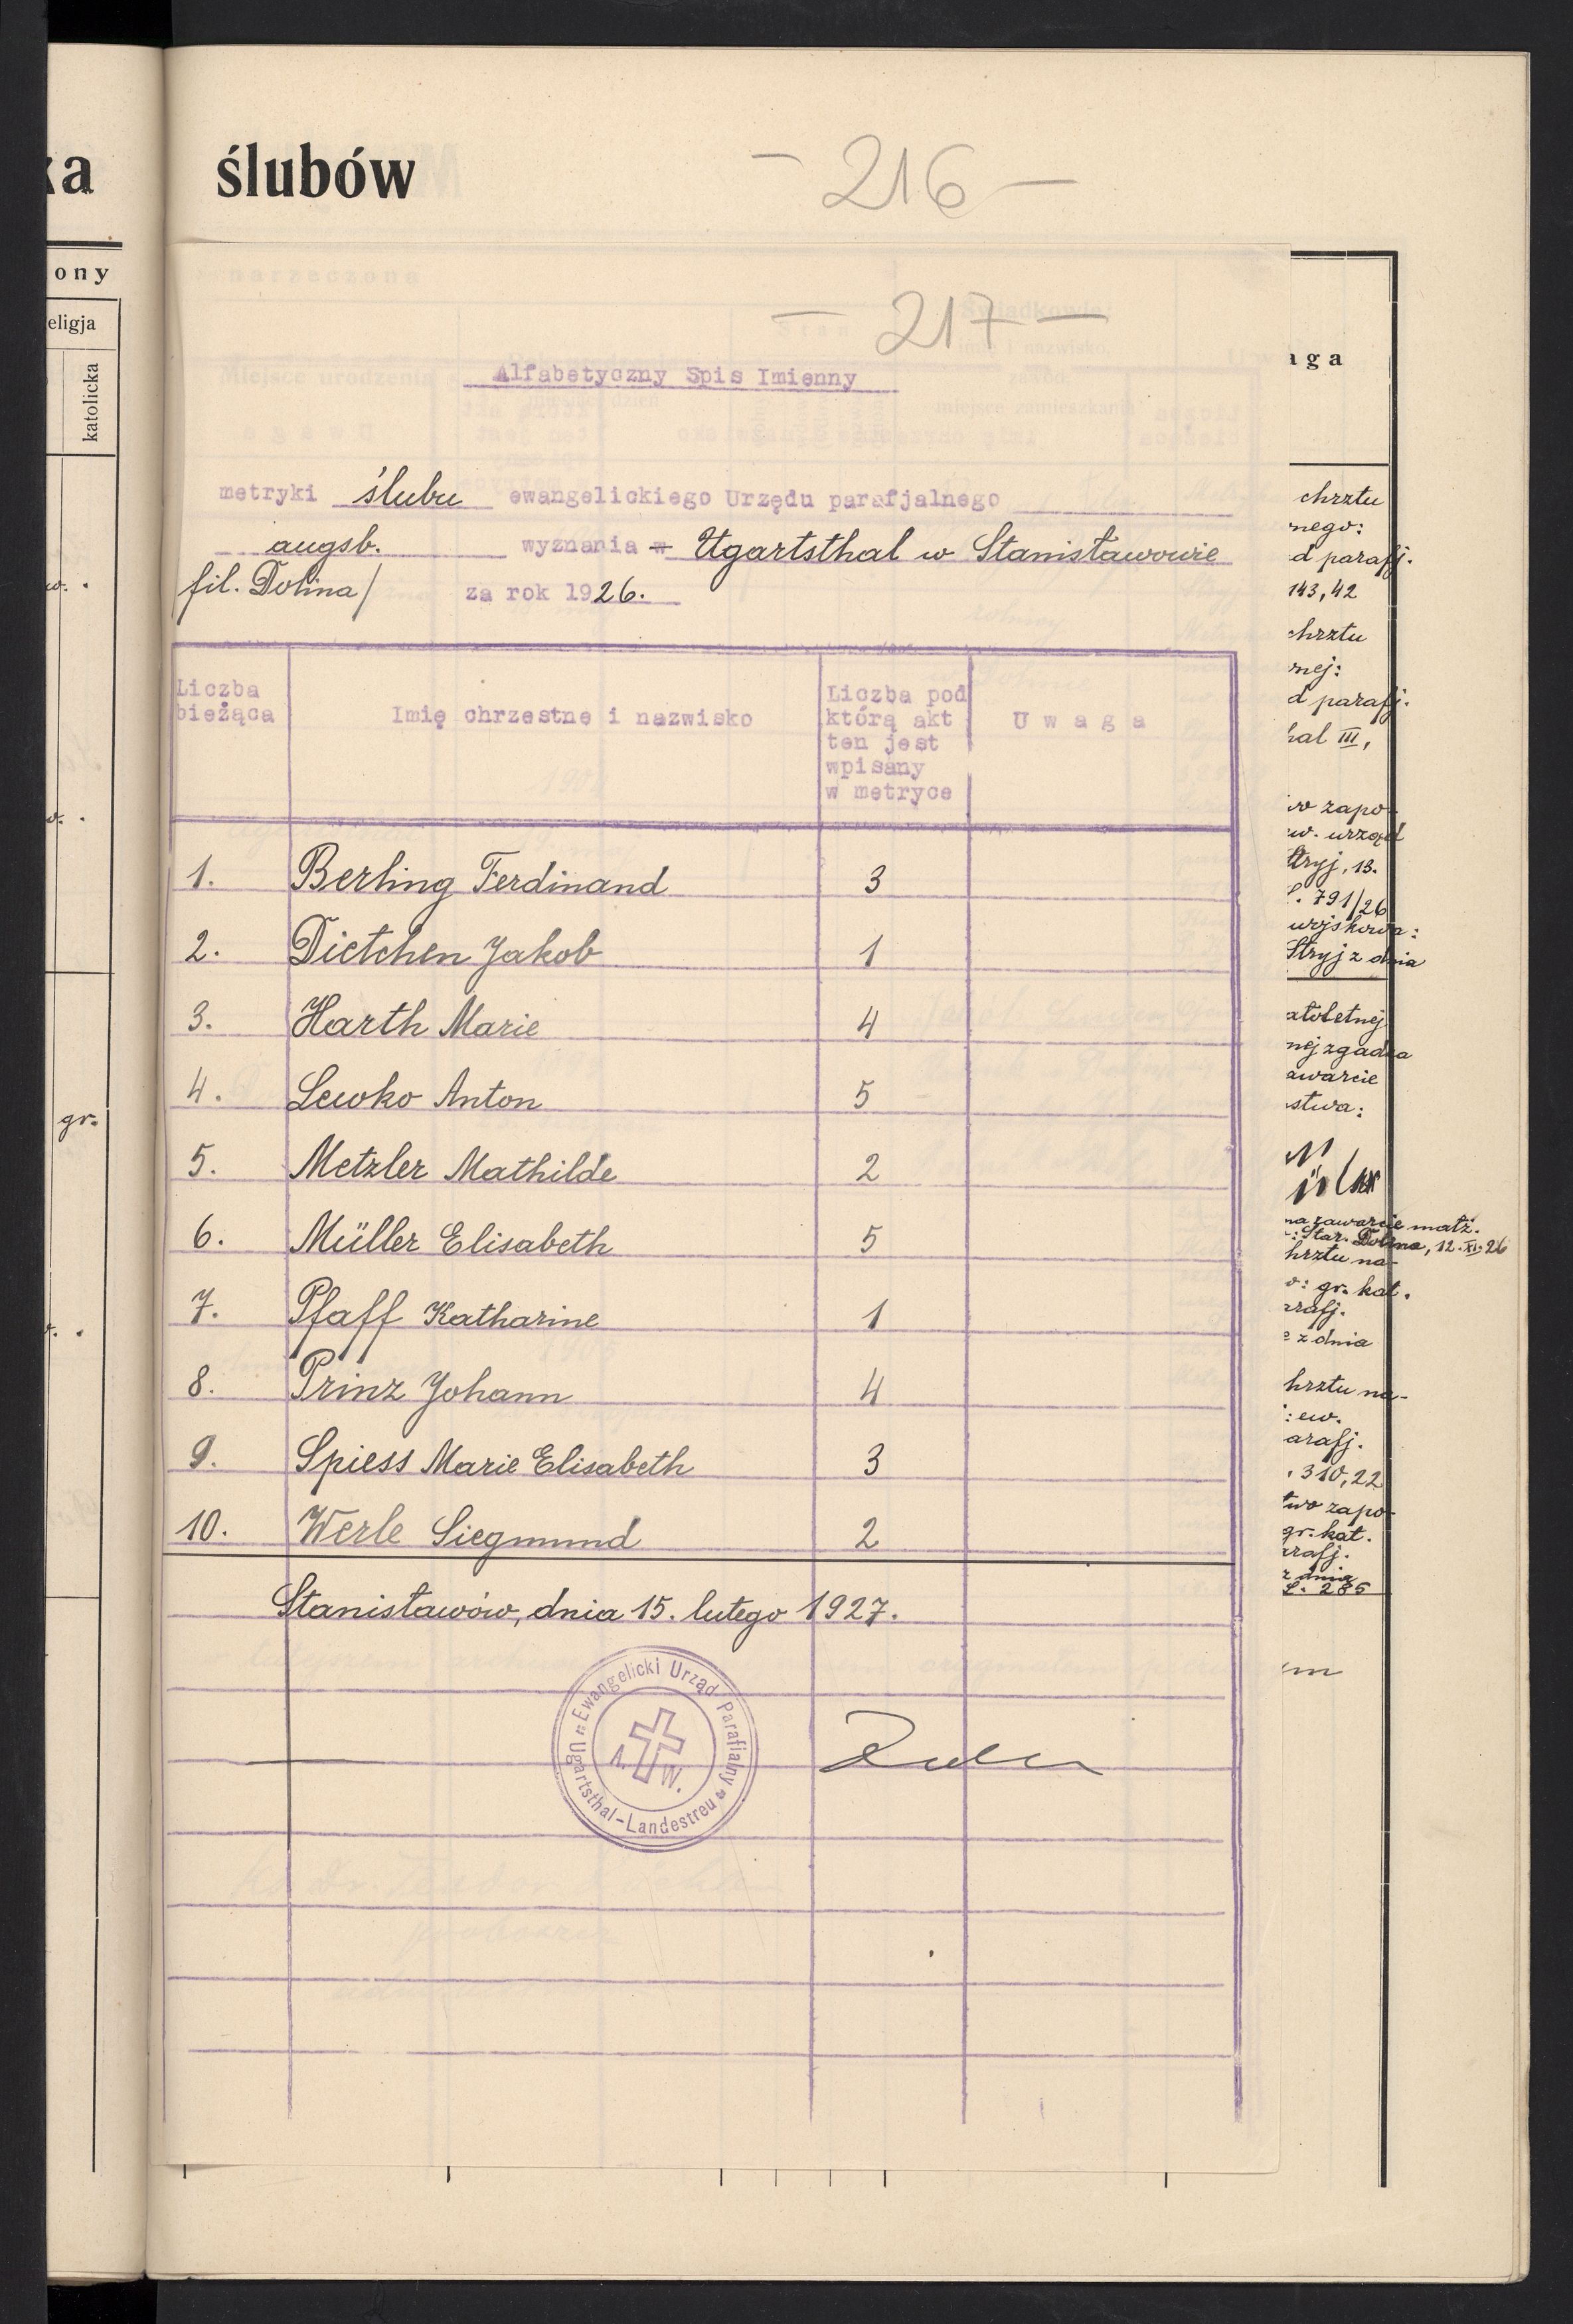 ślubów
– 216 –
ony
eligja
katolicka
gr.
– 217 –
Alfabetyczny Spis Imienny
metryki ślubu ewangelickiego Urzędu parafjalnego
augsb. wyznania w Ugartsthal w Stanisławowie
fil. Dolina/ za rok 1926.
Liczba bieżąca
Imię chrzestne i nazwisko
Liczba pod
którą akt
ten jest
wpisany
w metryce
Uwaga
1. Berling Ferdinand 3
2. Dietchen Jakob 1
3. Harth Marie 4
4. Lewko Anton 5
5. Metzler Mathilde 2
6. Müller Elisabeth 5
7. Pfaff Katharine 1
8. Prinz Johann 4
9. Spiess Marie Elisabeth 3
10. Werle Siegmund 2
Stanisławów, dnia 15. lutego 1927.
Ewangelicki Urząd Parafialny
Ugartsthal-Landestreu
A. W.
aga
chrztu
nego:
d parafj.
143,42
chrztu
nej:
d parafj.
hal III,
zapo-
w. urząd
Stryj, 13.
L. 791/26
Stryj z dnia
atoletnej
nej zgadza
awarcie
stwa:
na zawarcie małż.
: Star. Dolina, 12.XI.26
hrztu na-
o: gr. kat.
arafj.
e z dnia
hrztu na-
: ew.
arafj.
, 310,22
two zapo-
gr. kat.
arafj.
z dnia
L. 285